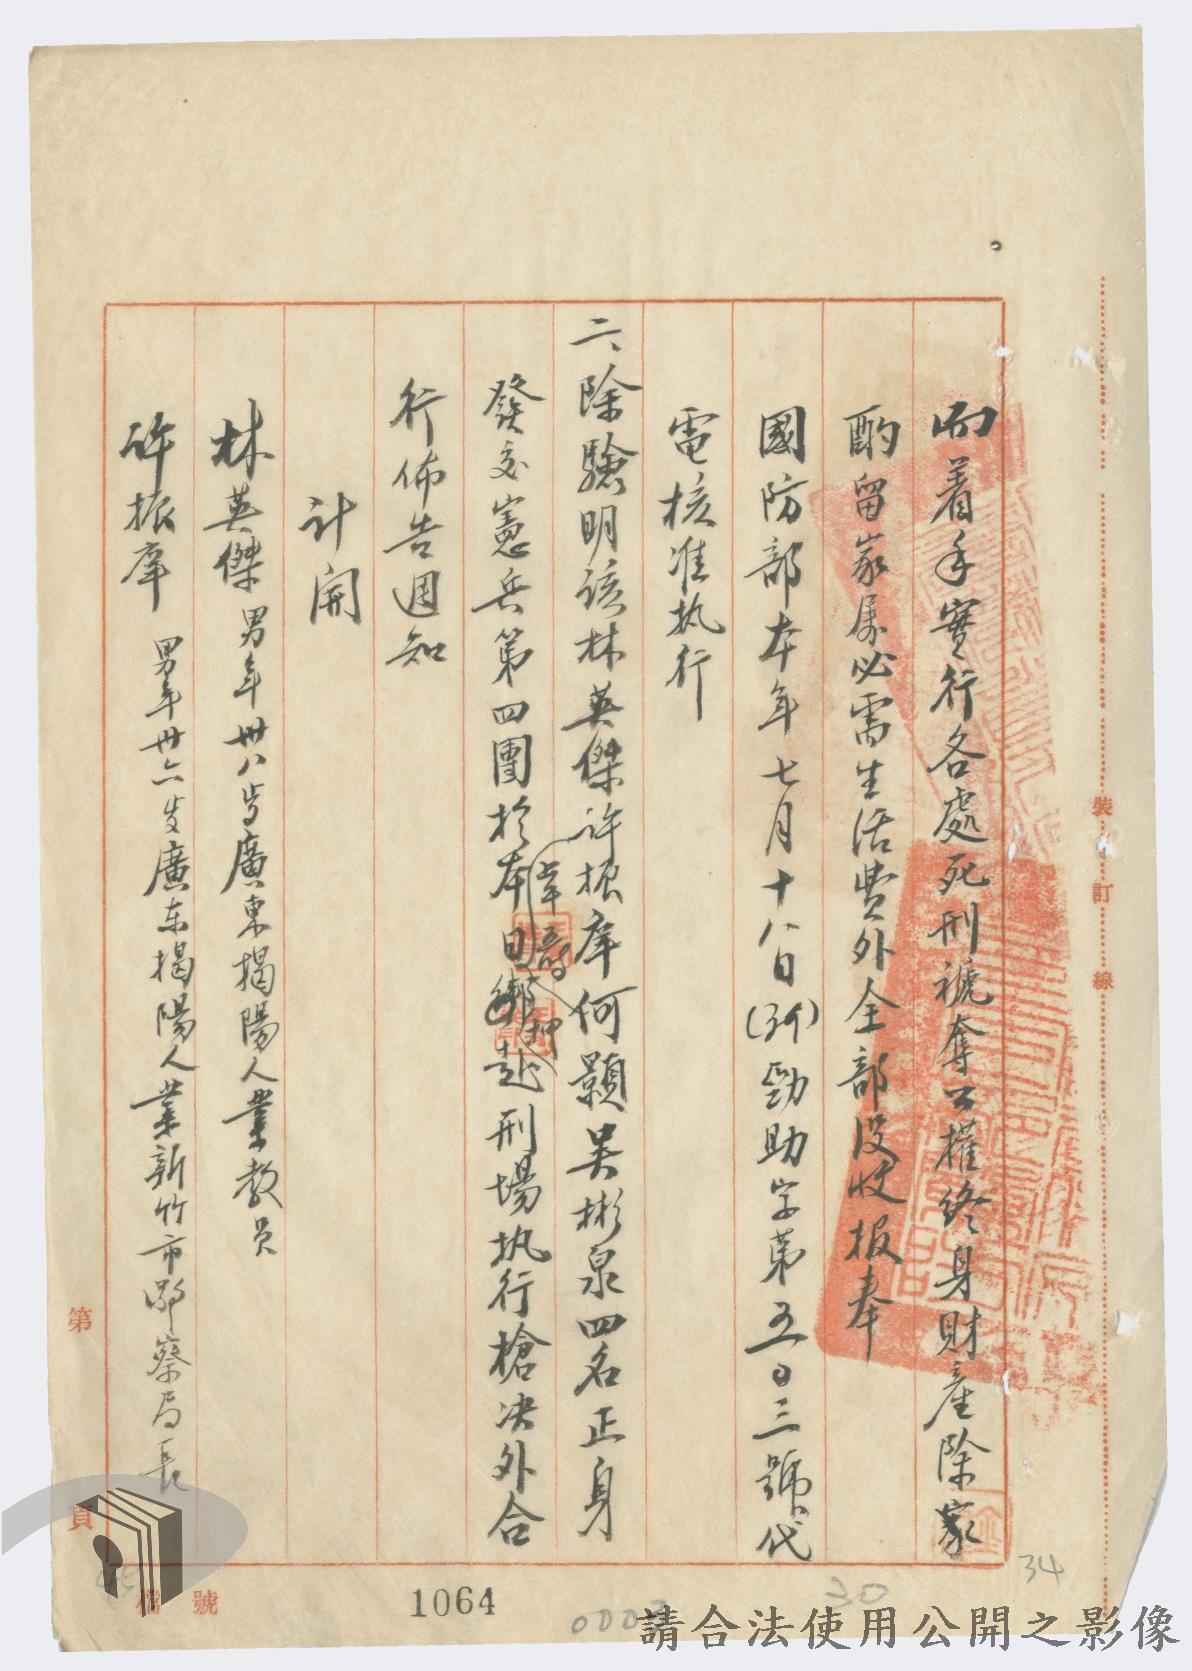 而着手實行各處死刑褫奪公權終身財產除家
酌留家屬必需生活費外全部沒收报奉
國防部本年七月十八日(39)勁助字第五〇三號代
電核准执行
二、除驗明該林英傑許振庠何顯吳彬泉四名正身
發交憲兵第四團於本日綁赴刑場执行槍决外合
晨
時
押
行佈告週知
計開
林英傑男年卅八歲廣東揭陽人業教員
許振庠男年卅六歲廣东揭陽人業新竹市警察局長
裝訂線
第頁
檔號
1064
30
34
請合法使用公開之影像